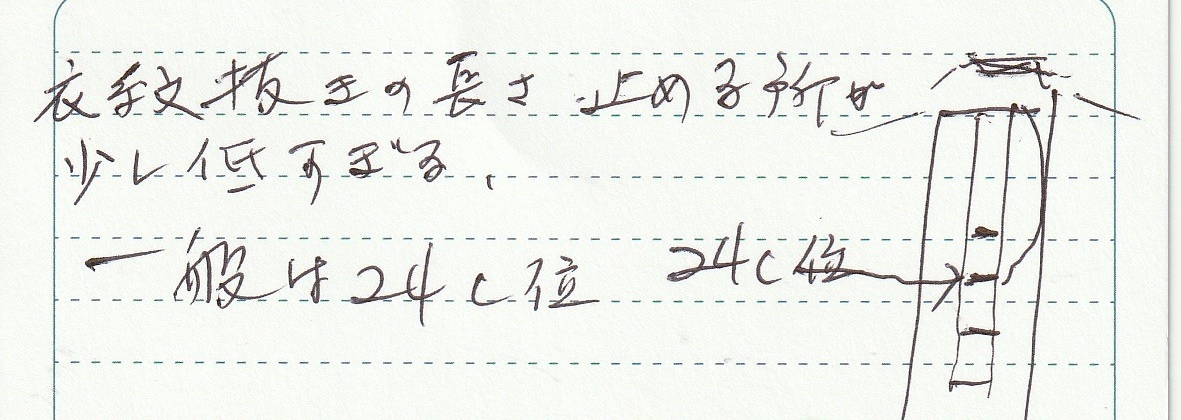 衣紋抜きの長さ 止める所が
少し低すぎる、
一般は24c位 24c位